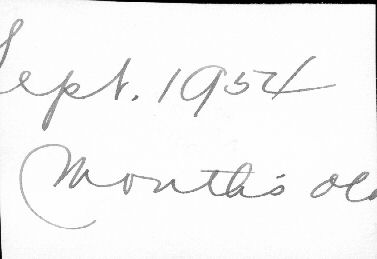 Sept. 1954
Months old